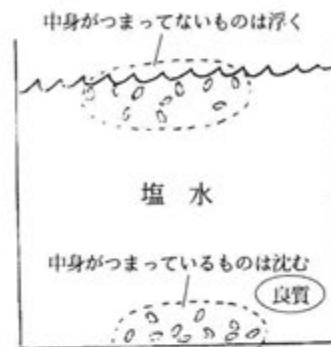 中身がつまってないものは浮く
塩 水
中身がつまっているものは沈む
良質